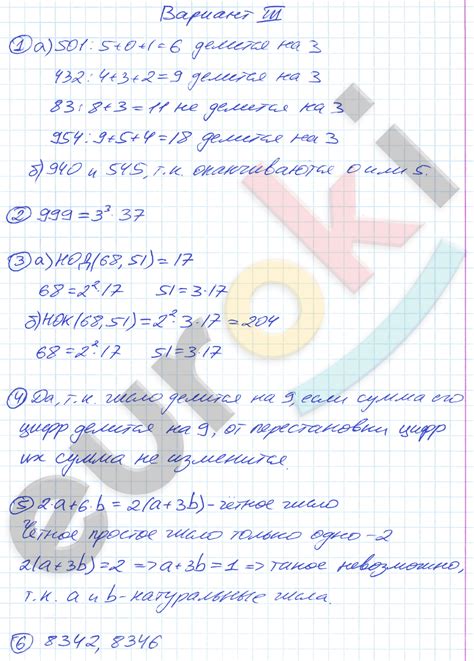 Вариант III
① а) 501: 5+0+1=6 делится на 3
432: 4+3+2=9 делится на 3
83: 8+3=11 не делится на 3
954: 9+5+4=18 делится на 3
б) 940 и 545, т.к. оканчиваются 0 или 5.
② 999 = 3³·37
③ а) НОД(68, 51) = 17
68=2²·17 51=3·17
б) НОК(68, 51) = 2²·3·17 = 204
68=2²·17 51=3·17
④ Да, т.к. число делится на 9, если сумма его
цифр делится на 9, от перестановки цифр
их сумма не изменится.
⑤ 2·a+6·b = 2(a+3b) - четное число
Четное простое число только одно - 2
2(a+3b)=2 => a+3b=1 => такое невозможно,
т.к. a и b - натуральные числа.
⑥ 8342, 8346
euroki